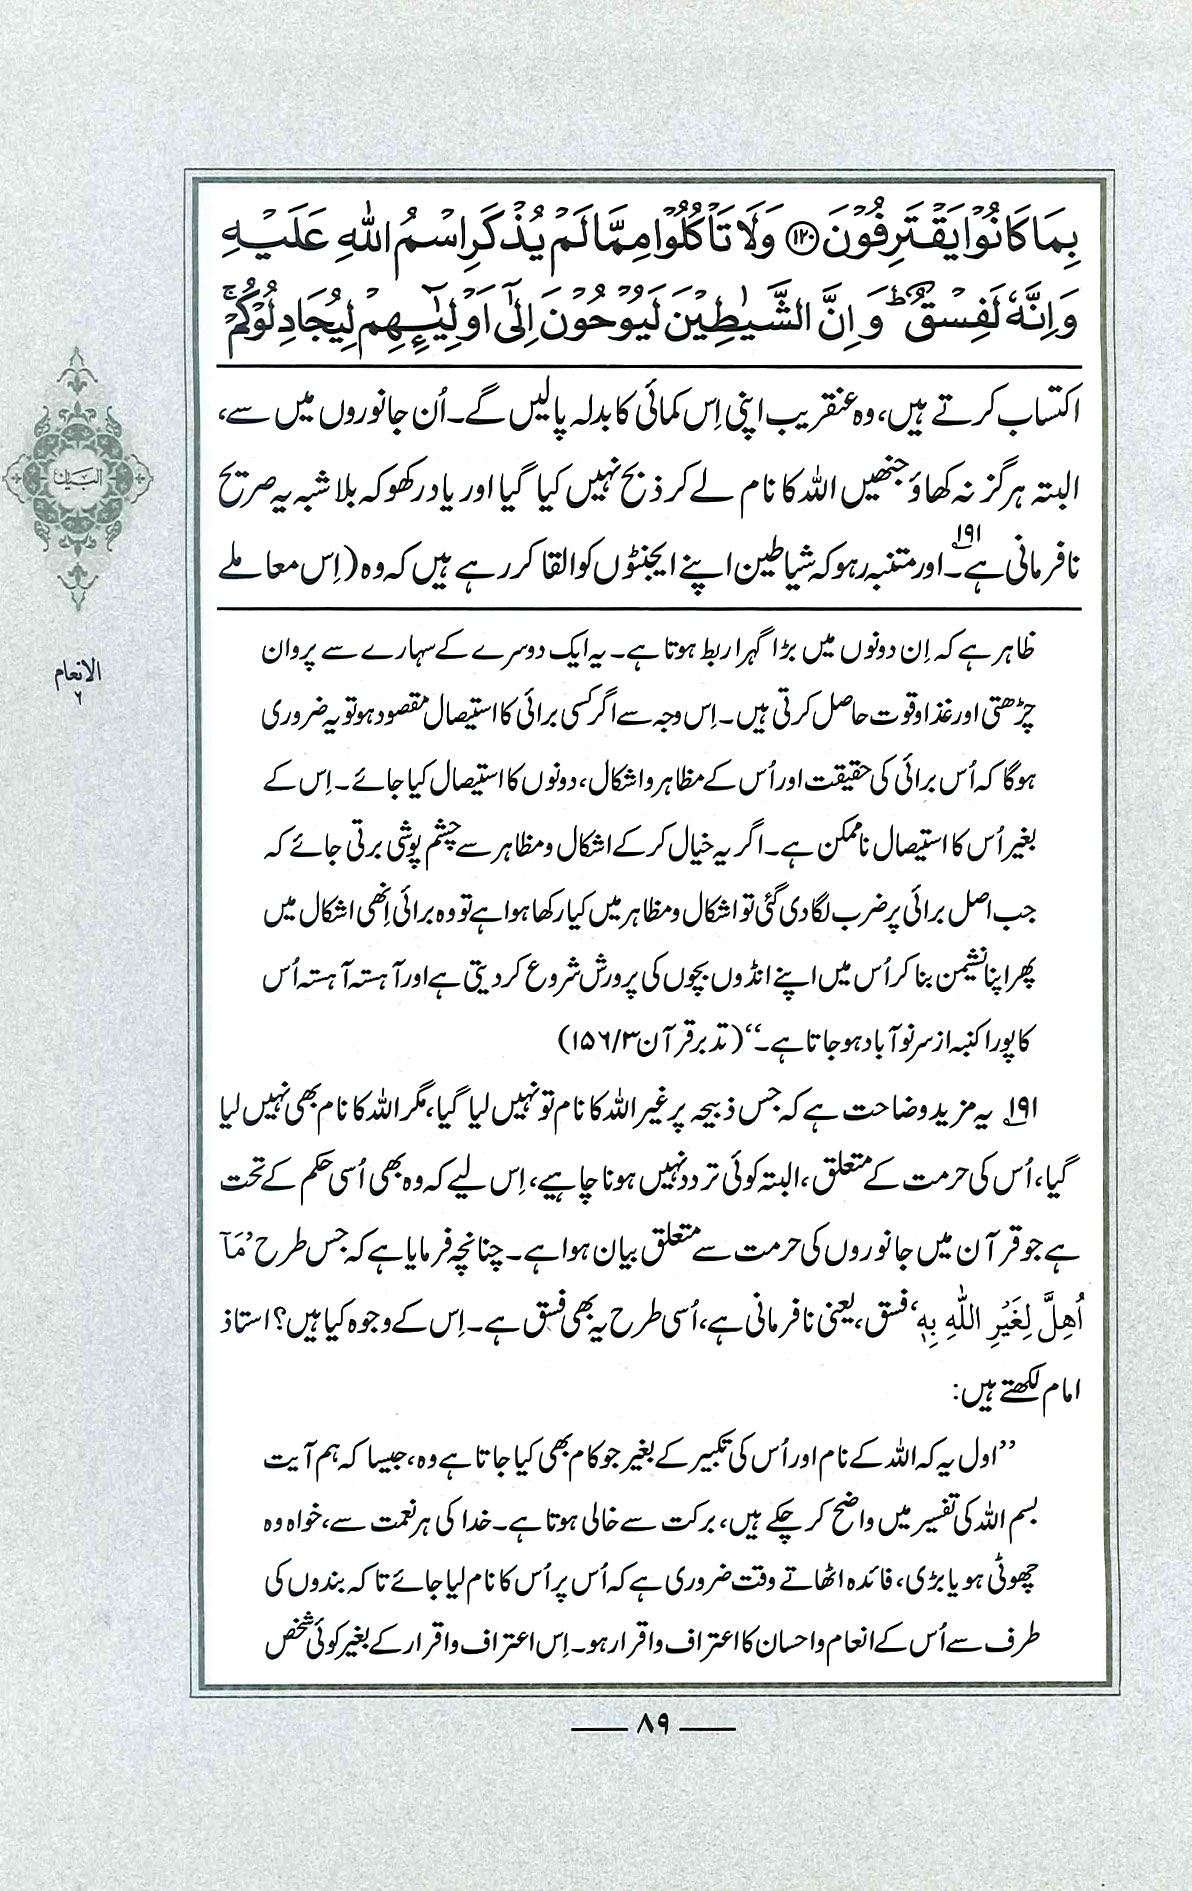 بِمَا كَانُوْا يَقْتَرِفُوْنَ ﴿۱۲۰﴾ وَلَا تَاْكُلُوْا مِمَّا لَمْ يُذْكَرِ اسْمُ اللّٰهِ عَلَيْهِ
وَاِنَّهٗ لَفِسْقٌ ؕ وَاِنَّ الشَّيٰطِيْنَ لَيُوْحُوْنَ اِلٰٓى اَوْلِيٰٓـِٕهِمْ لِيُجَادِلُوْكُمْ ۚ
اکتساب کرتے ہیں، وہ عنقریب اپنی اِس کمائی کا بدلہ پالیں گے۔ اُن جانوروں میں سے،
البتہ ہرگز نہ کھاؤ جنھیں اللہ کا نام لے کر ذبح نہیں کیا گیا اور یاد رکھو کہ بلاشبہ یہ صریح
نافرمانی ہے۔۱۹۱ اور متنبہ رہو کہ شیاطین اپنے ایجنٹوں کو القا کر رہے ہیں کہ وہ (اِس معاملے
البیان
الانعام
۶
ظاہر ہے کہ اِن دونوں میں بڑا گہرا ربط ہوتا ہے۔ یہ ایک دوسرے کے سہارے سے پروان
چڑھتی اور غذا و قوت حاصل کرتی ہیں۔ اِس وجہ سے اگر کسی برائی کا استیصال مقصود ہو تو یہ ضروری
ہوگا کہ اُس برائی کی حقیقت اور اُس کے مظاہر و اشکال، دونوں کا استیصال کیا جائے۔ اِس کے
بغیر اُس کا استیصال ناممکن ہے۔ اگر یہ خیال کر کے اشکال و مظاہر سے چشم پوشی برتی جائے کہ
جب اصل برائی پر ضرب لگا دی گئی تو اشکال و مظاہر میں کیا رکھا ہوا ہے تو وہ برائی اِنھی اشکال میں
پھر اپنا نشیمن بنا کر اُس میں اپنے انڈوں بچوں کی پرورش شروع کر دیتی ہے اور آہستہ آہستہ اُس
کا پورا کنبہ از سر نو آباد ہو جاتا ہے۔‘‘ (تدبر قرآن ۳/۱۵۶)
۱۹۱ یہ مزید وضاحت ہے کہ جس ذبیحہ پر غیر اللہ کا نام تو نہیں لیا گیا، مگر اللہ کا نام بھی نہیں لیا
گیا، اُس کی حرمت کے متعلق، البتہ کوئی تردد نہیں ہونا چاہیے، اِس لیے کہ وہ بھی اُسی حکم کے تحت
ہے جو قرآن میں جانوروں کی حرمت سے متعلق بیان ہوا ہے۔ چنانچہ فرمایا ہے کہ جس طرح ’مَآ
اُهِلَّ لِغَيْرِ اللّٰهِ بِهٖ‘ فسق، یعنی نافرمانی ہے، اُسی طرح یہ بھی فسق ہے۔ اِس کے وجوہ کیا ہیں؟ استاذ
امام لکھتے ہیں:
’’اول یہ کہ اللہ کے نام اور اُس کی تکبیر کے بغیر جو کام بھی کیا جاتا ہے وہ، جیسا کہ ہم آیت
بسم اللہ کی تفسیر میں واضح کر چکے ہیں، برکت سے خالی ہوتا ہے۔ خدا کی ہر نعمت سے، خواہ وہ
چھوٹی ہو یا بڑی، فائدہ اٹھاتے وقت ضروری ہے کہ اُس پر اُس کا نام لیا جائے تاکہ بندوں کی
طرف سے اُس کے انعام و احسان کا اعتراف و اقرار ہو۔ اِس اعتراف و اقرار کے بغیر کوئی شخص
۸۹